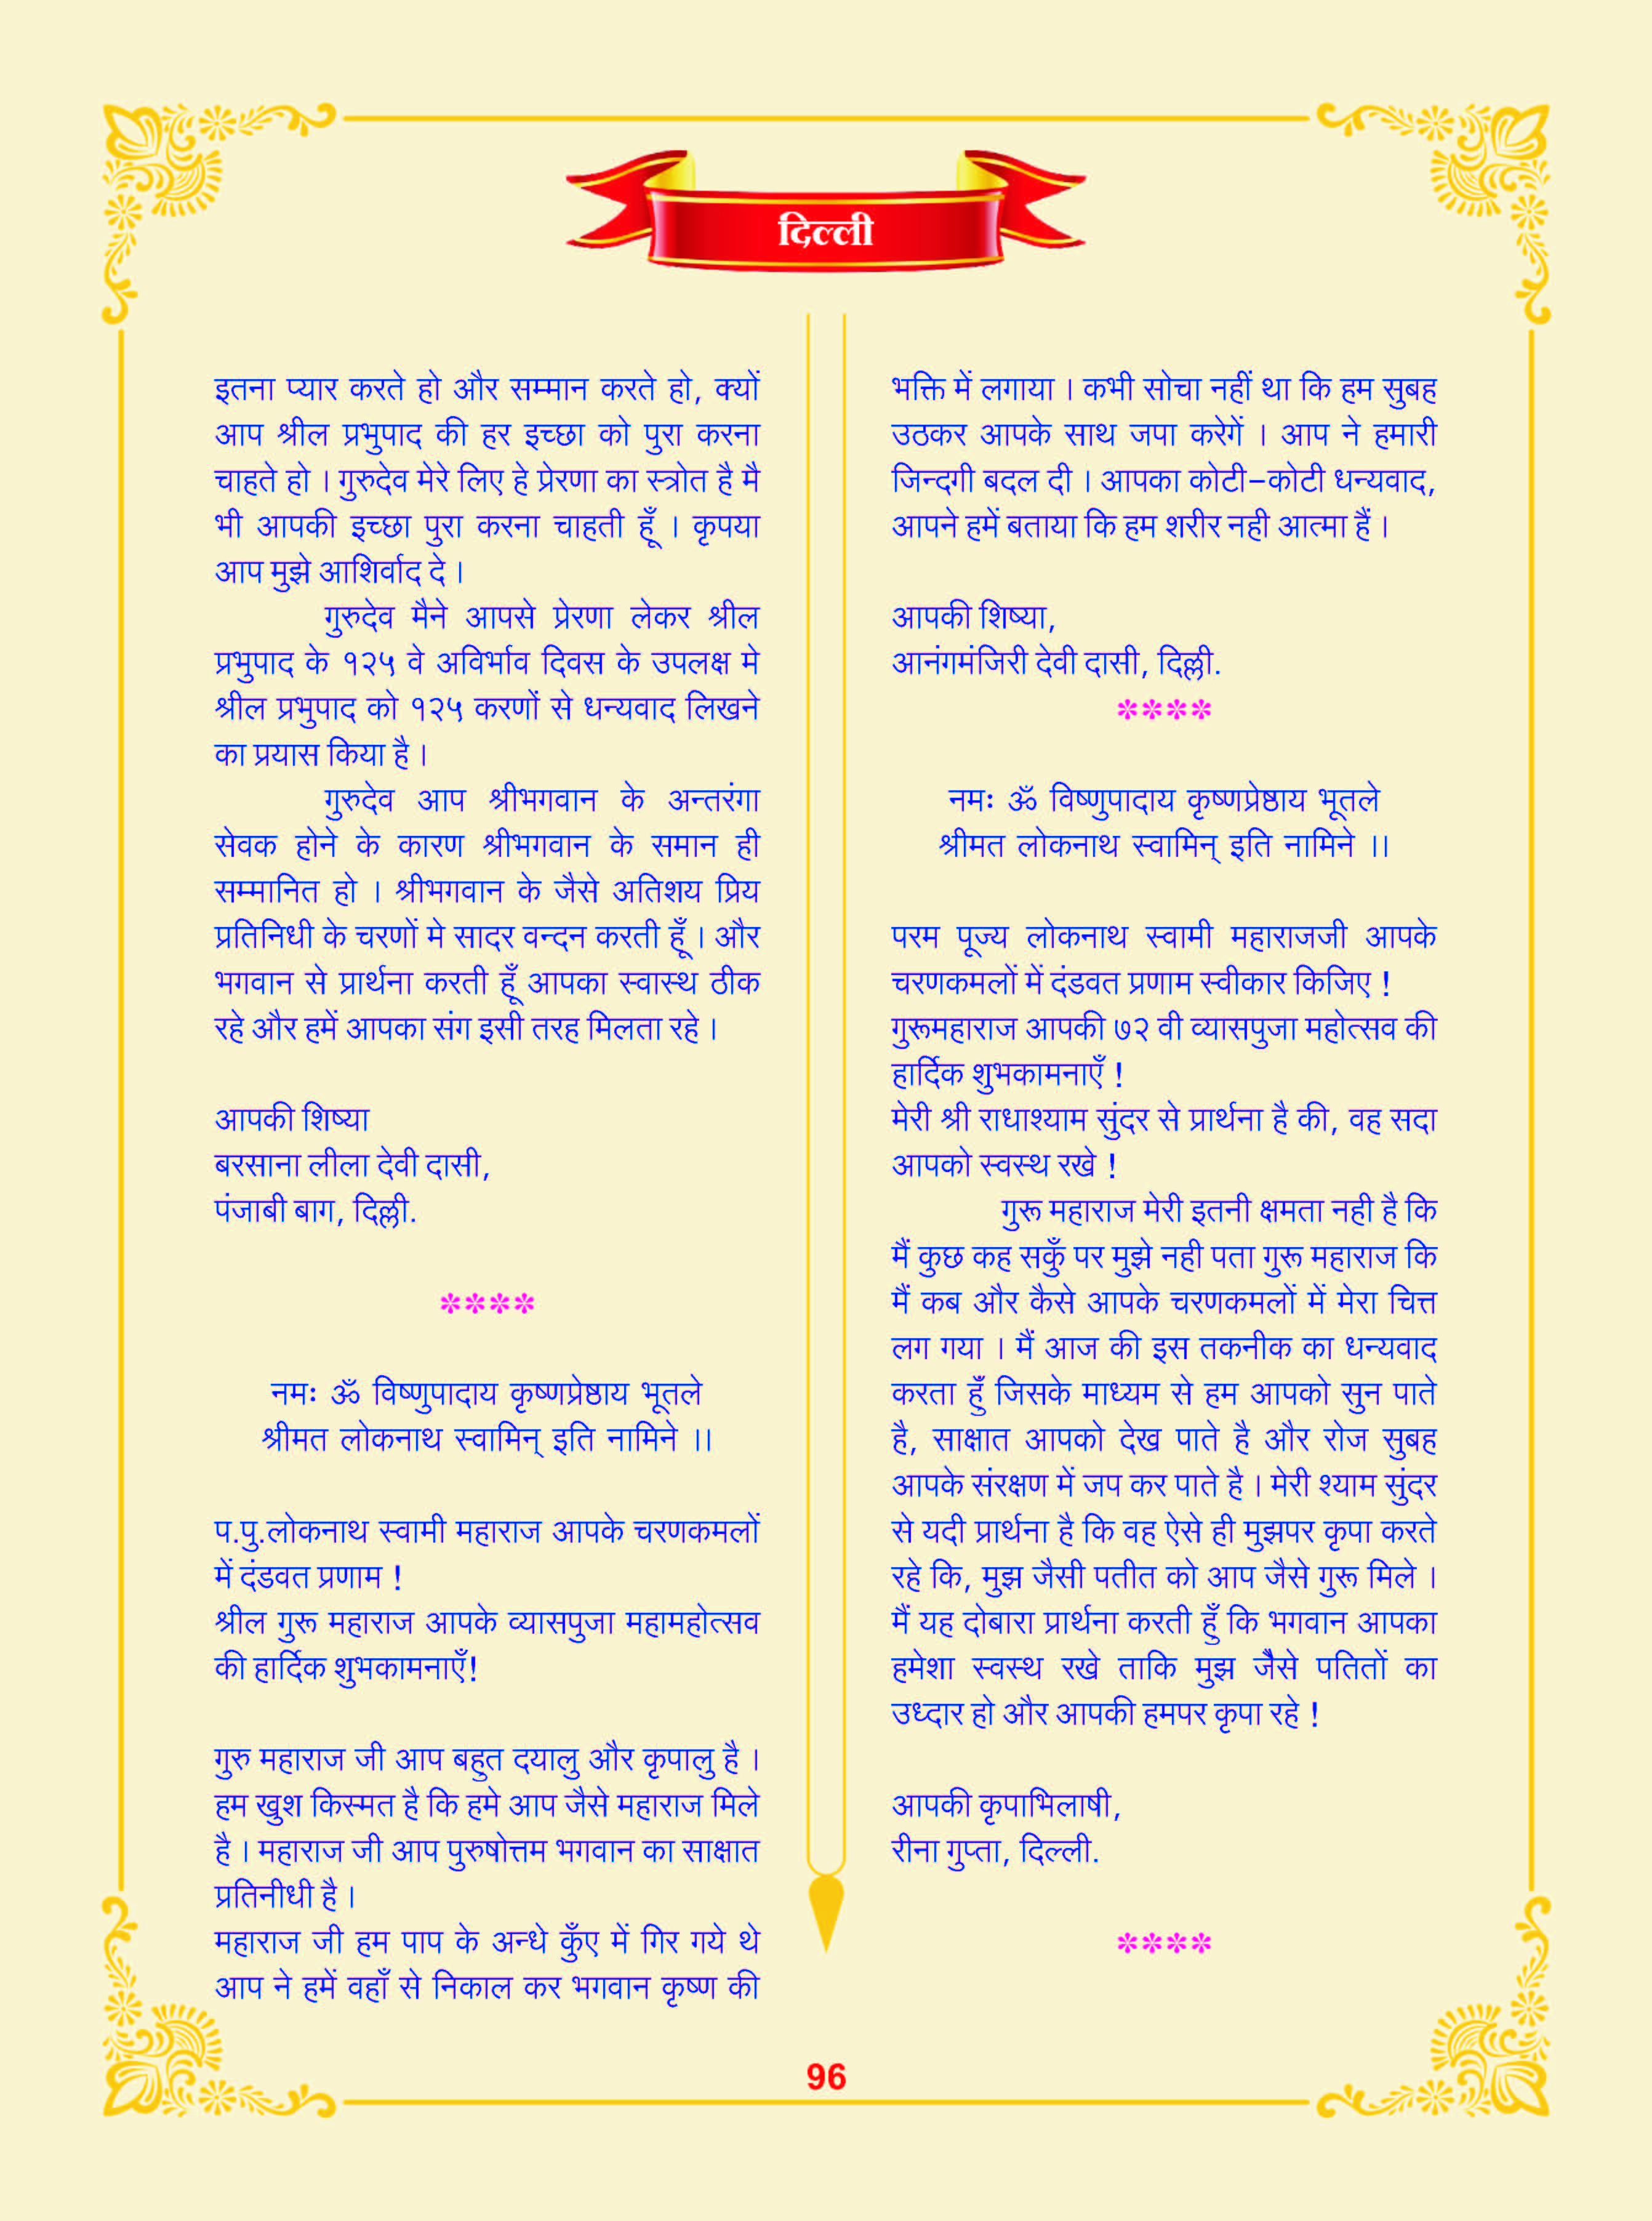 दिल्ली
इतना प्यार करते हो और सम्मान करते हो, क्यों
आप श्रील प्रभुपाद की हर इच्छा को पुरा करना
चाहते हो । गुरुदेव मेरे लिए हे प्रेरणा का स्त्रोत है मै
भी आपकी इच्छा पुरा करना चाहती हूँ । कृपया
आप मुझे आशिर्वाद दे ।
गुरुदेव मैने आपसे प्रेरणा लेकर श्रील
प्रभुपाद के १२५ वे अविर्भाव दिवस के उपलक्ष मे
श्रील प्रभुपाद को १२५ करणों से धन्यवाद लिखने
का प्रयास किया है ।
गुरुदेव आप श्रीभगवान के अन्तरंगा
सेवक होने के कारण श्रीभगवान के समान ही
सम्मानित हो । श्रीभगवान के जैसे अतिशय प्रिय
प्रतिनिधी के चरणों मे सादर वन्दन करती हूँ । और
भगवान से प्रार्थना करती हूँ आपका स्वास्थ ठीक
रहे और हमें आपका संग इसी तरह मिलता रहे ।
आपकी शिष्या
बरसाना लीला देवी दासी,
पंजाबी बाग, दिल्ली.
****
नमः ॐ विष्णुपादाय कृष्णप्रेष्ठाय भूतले
श्रीमत लोकनाथ स्वामिन् इति नामिने ।।
प.पु.लोकनाथ स्वामी महाराज आपके चरणकमलों
में दंडवत प्रणाम !
श्रील गुरू महाराज आपके व्यासपुजा महामहोत्सव
की हार्दिक शुभकामनाएँ!
गुरु महाराज जी आप बहुत दयालु और कृपालु है ।
हम खुश किस्मत है कि हमे आप जैसे महाराज मिले
है । महाराज जी आप पुरुषोत्तम भगवान का साक्षात
प्रतिनीधी है ।
महाराज जी हम पाप के अन्धे कुँए में गिर गये थे
आप ने हमें वहाँ से निकाल कर भगवान कृष्ण की
भक्ति में लगाया । कभी सोचा नहीं था कि हम सुबह
उठकर आपके साथ जपा करेगें । आप ने हमारी
जिन्दगी बदल दी । आपका कोटी-कोटी धन्यवाद,
आपने हमें बताया कि हम शरीर नही आत्मा हैं ।
आपकी शिष्या,
आनंगमंजिरी देवी दासी, दिल्ली.
****
नमः ॐ विष्णुपादाय कृष्णप्रेष्ठाय भूतले
श्रीमत लोकनाथ स्वामिन् इति नामिने ।।
परम पूज्य लोकनाथ स्वामी महाराजजी आपके
चरणकमलों में दंडवत प्रणाम स्वीकार किजिए !
गुरूमहाराज आपकी ७२ वी व्यासपुजा महोत्सव की
हार्दिक शुभकामनाएँ !
मेरी श्री राधाश्याम सुंदर से प्रार्थना है की, वह सदा
आपको स्वस्थ रखे !
गुरू महाराज मेरी इतनी क्षमता नही है कि
मैं कुछ कह सकुँ पर मुझे नही पता गुरू महाराज कि
मैं कब और कैसे आपके चरणकमलों में मेरा चित्त
लग गया । मैं आज की इस तकनीक का धन्यवाद
करता हुँ जिसके माध्यम से हम आपको सुन पाते
है, साक्षात आपको देख पाते है और रोज सुबह
आपके संरक्षण में जप कर पाते है । मेरी श्याम सुंदर
से यदी प्रार्थना है कि वह ऐसे ही मुझपर कृपा करते
रहे कि, मुझ जैसी पतीत को आप जैसे गुरू मिले ।
मैं यह दोबारा प्रार्थना करती हुँ कि भगवान आपका
हमेशा स्वस्थ रखे ताकि मुझ जैसे पतितों का
उध्दार हो और आपकी हमपर कृपा रहे !
आपकी कृपाभिलाषी,
रीना गुप्ता, दिल्ली.
****
96